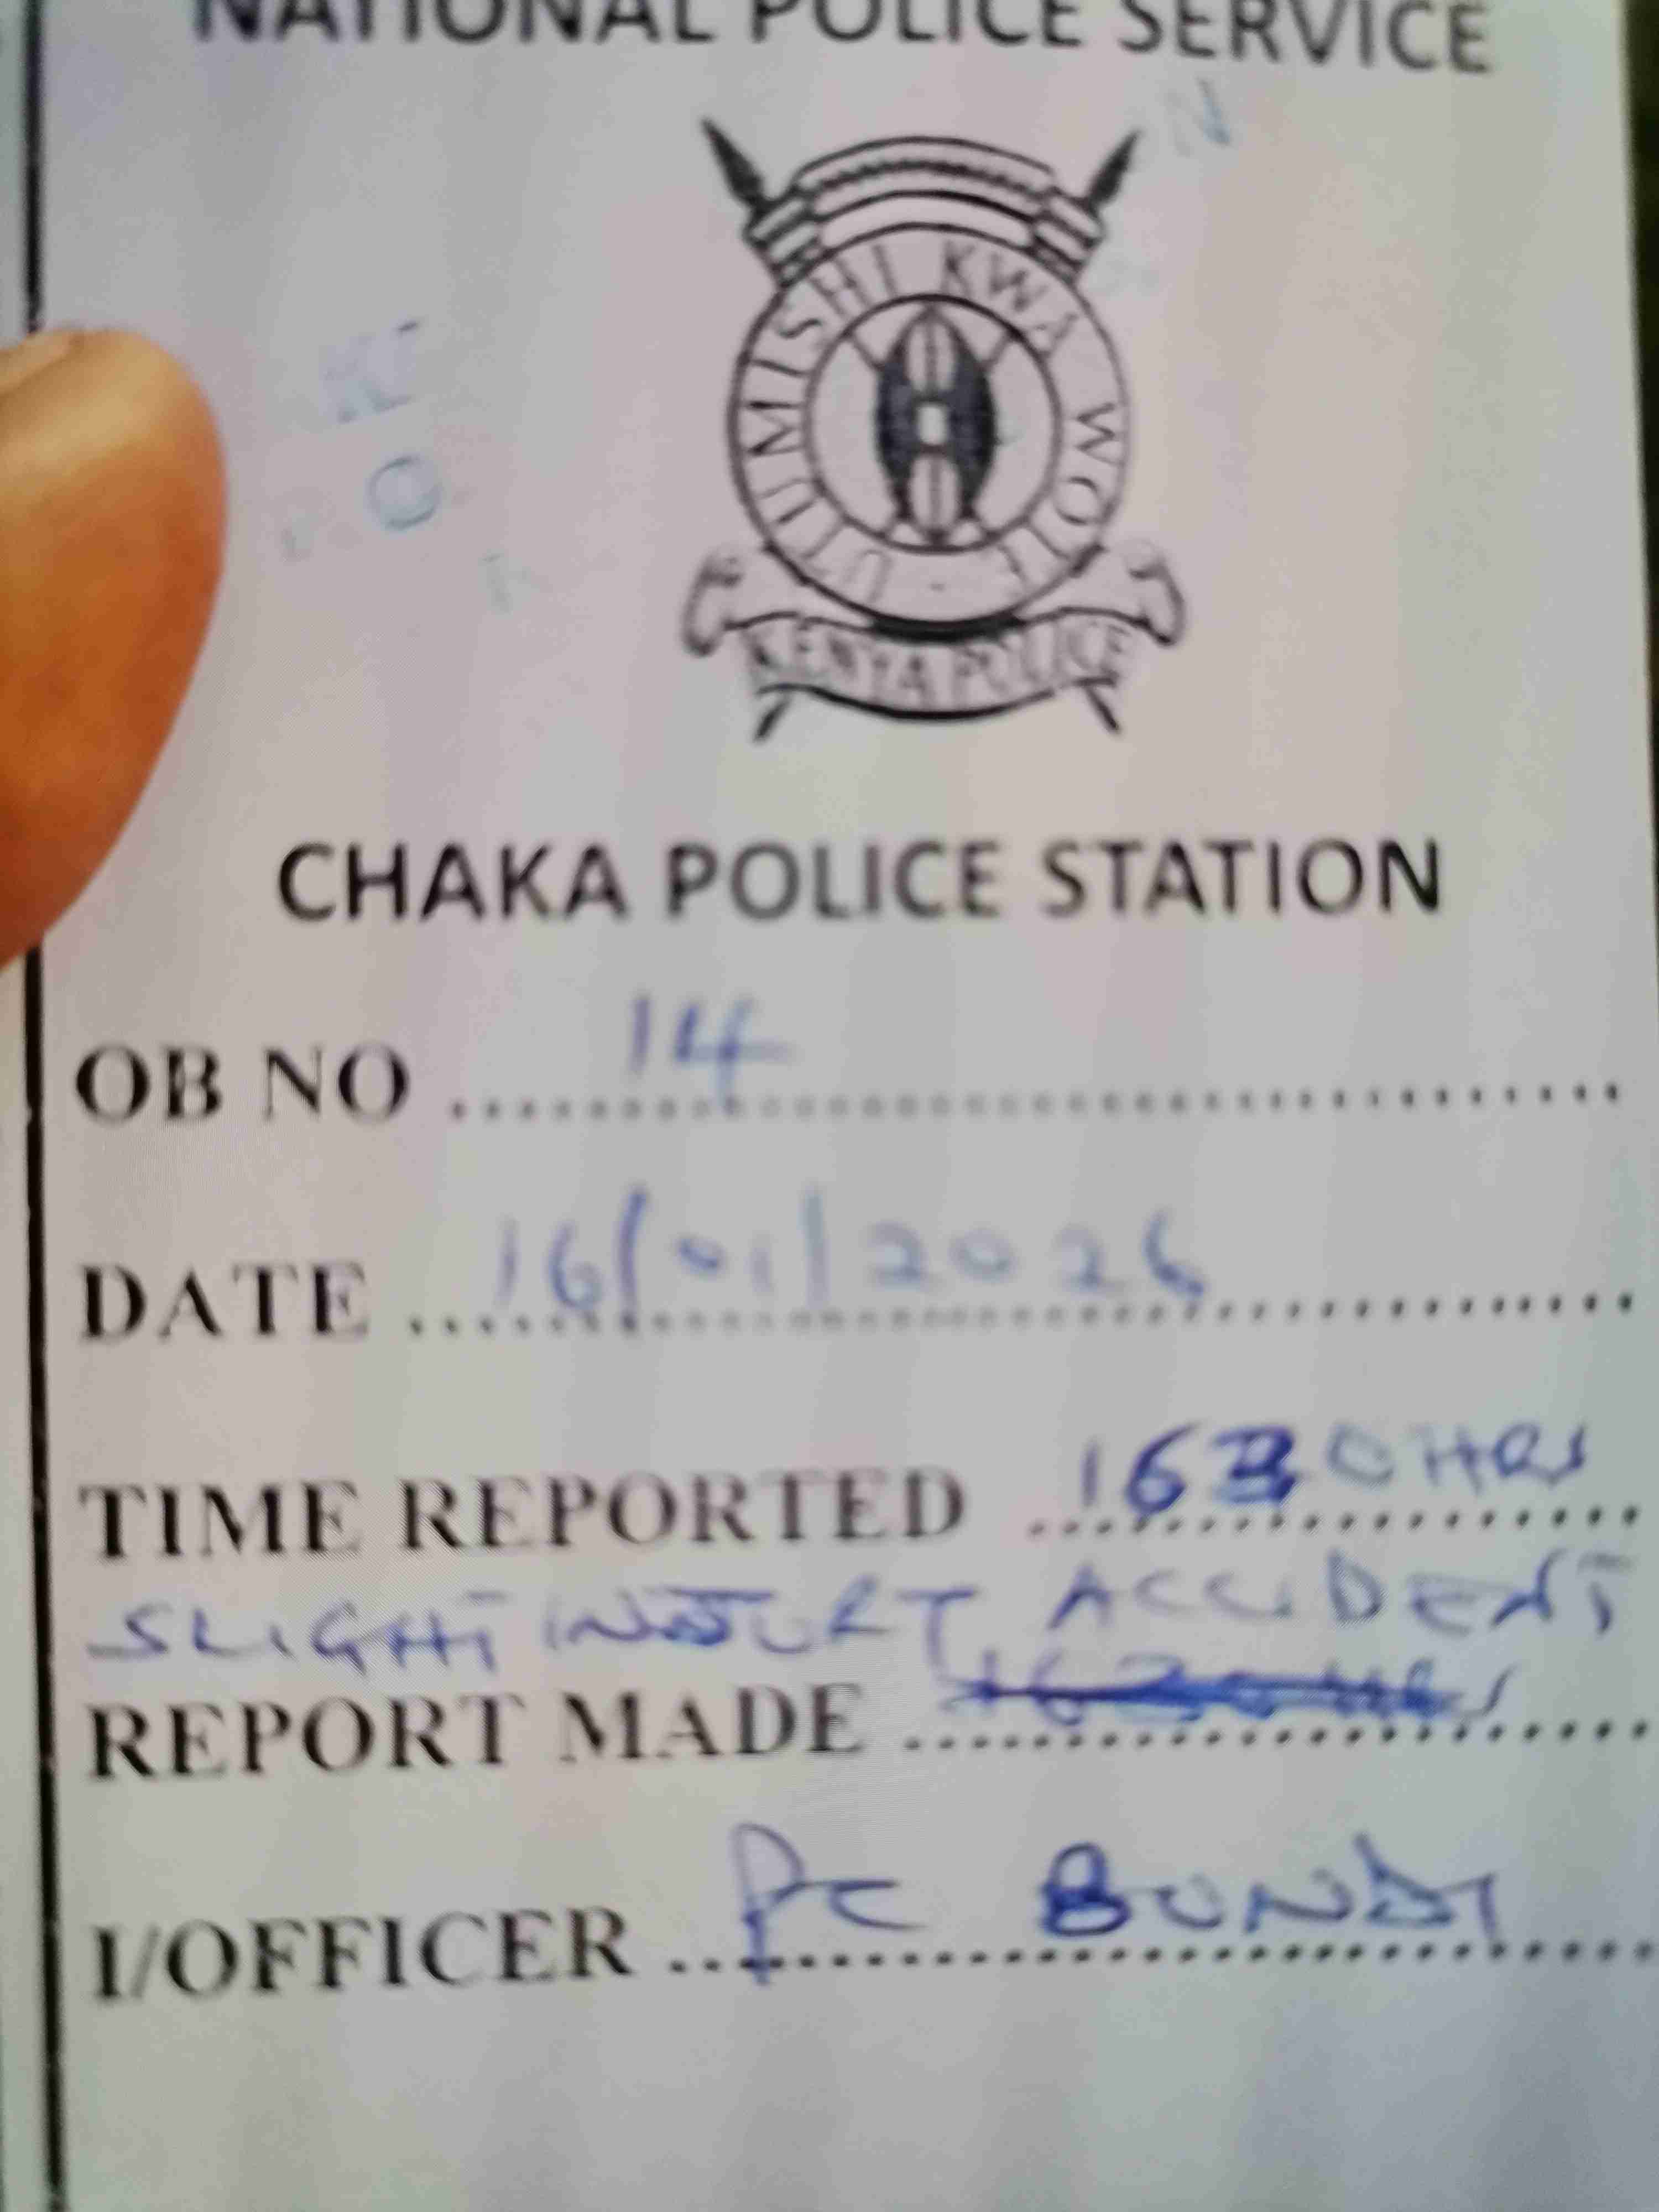 NATIONAL POLICE SERVICE
UTUMISHI KWA WOTE
KENYA POLICE
CHAKA POLICE STATION
OB NO 14
DATE 16/01/2026
TIME REPORTED 1630HRS
SLIGHT INJURY ACCIDENT
REPORT MADE
I/OFFICER PC BUNDI